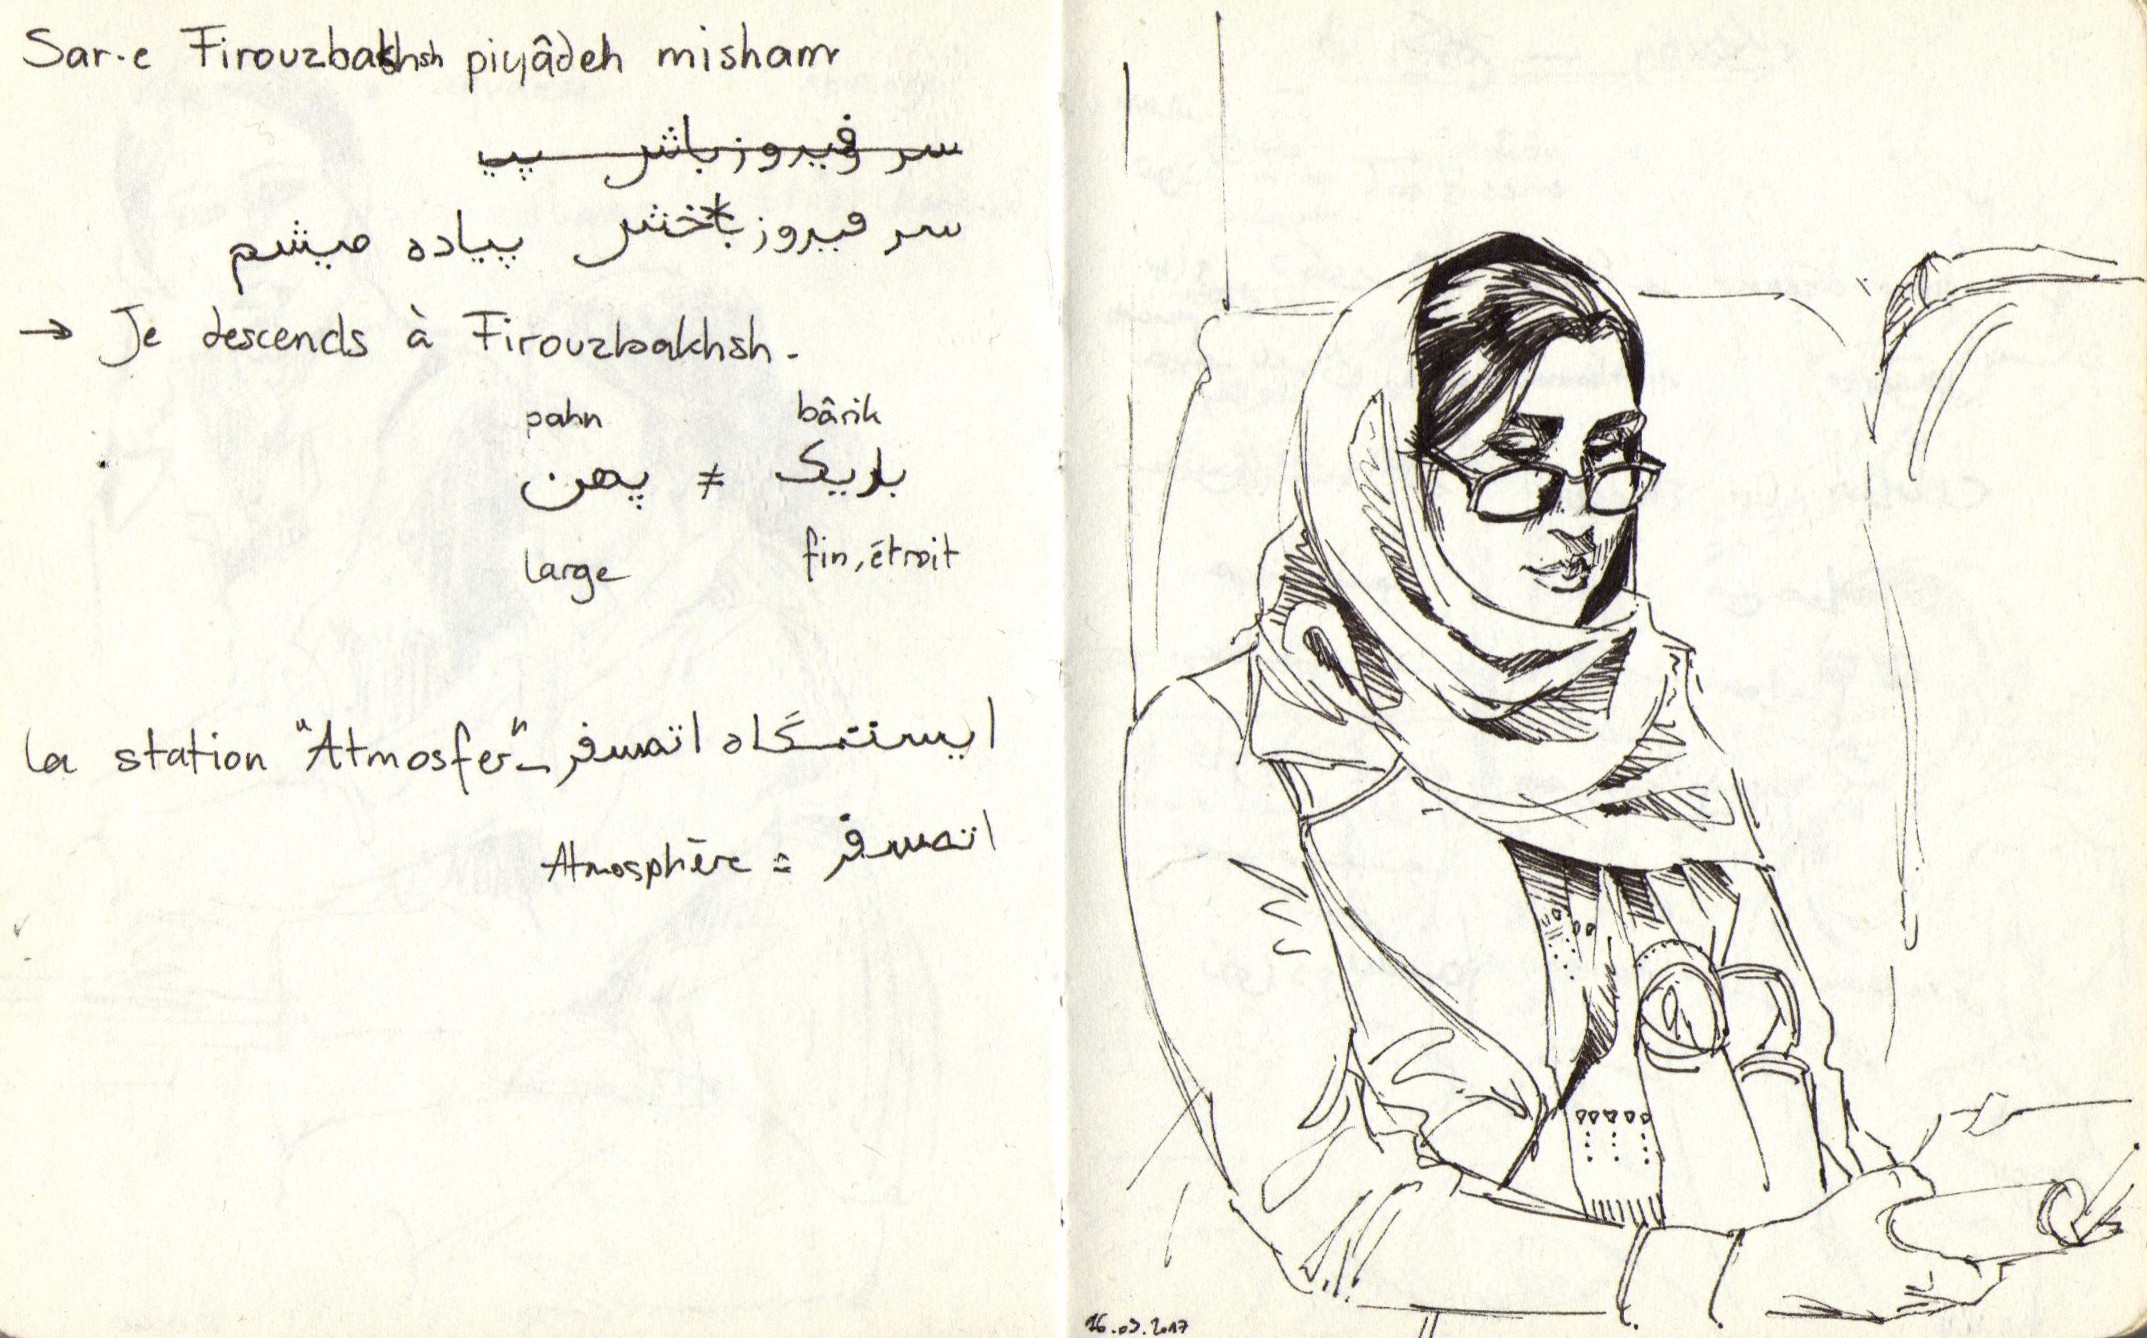 Sar-e Firouzbakhsh piyâdeh misham
سر فیروزباش پیی
سر فیروزباخش پیاده میشم
→ Je descends à Firouzbakhsh.
pahn bârik
پهن ≠ باریک
large fin, étroit
la station "Atmosfer" ایستگاه اتمسفر
Atmosphère = اتمسفر
26.03.2017